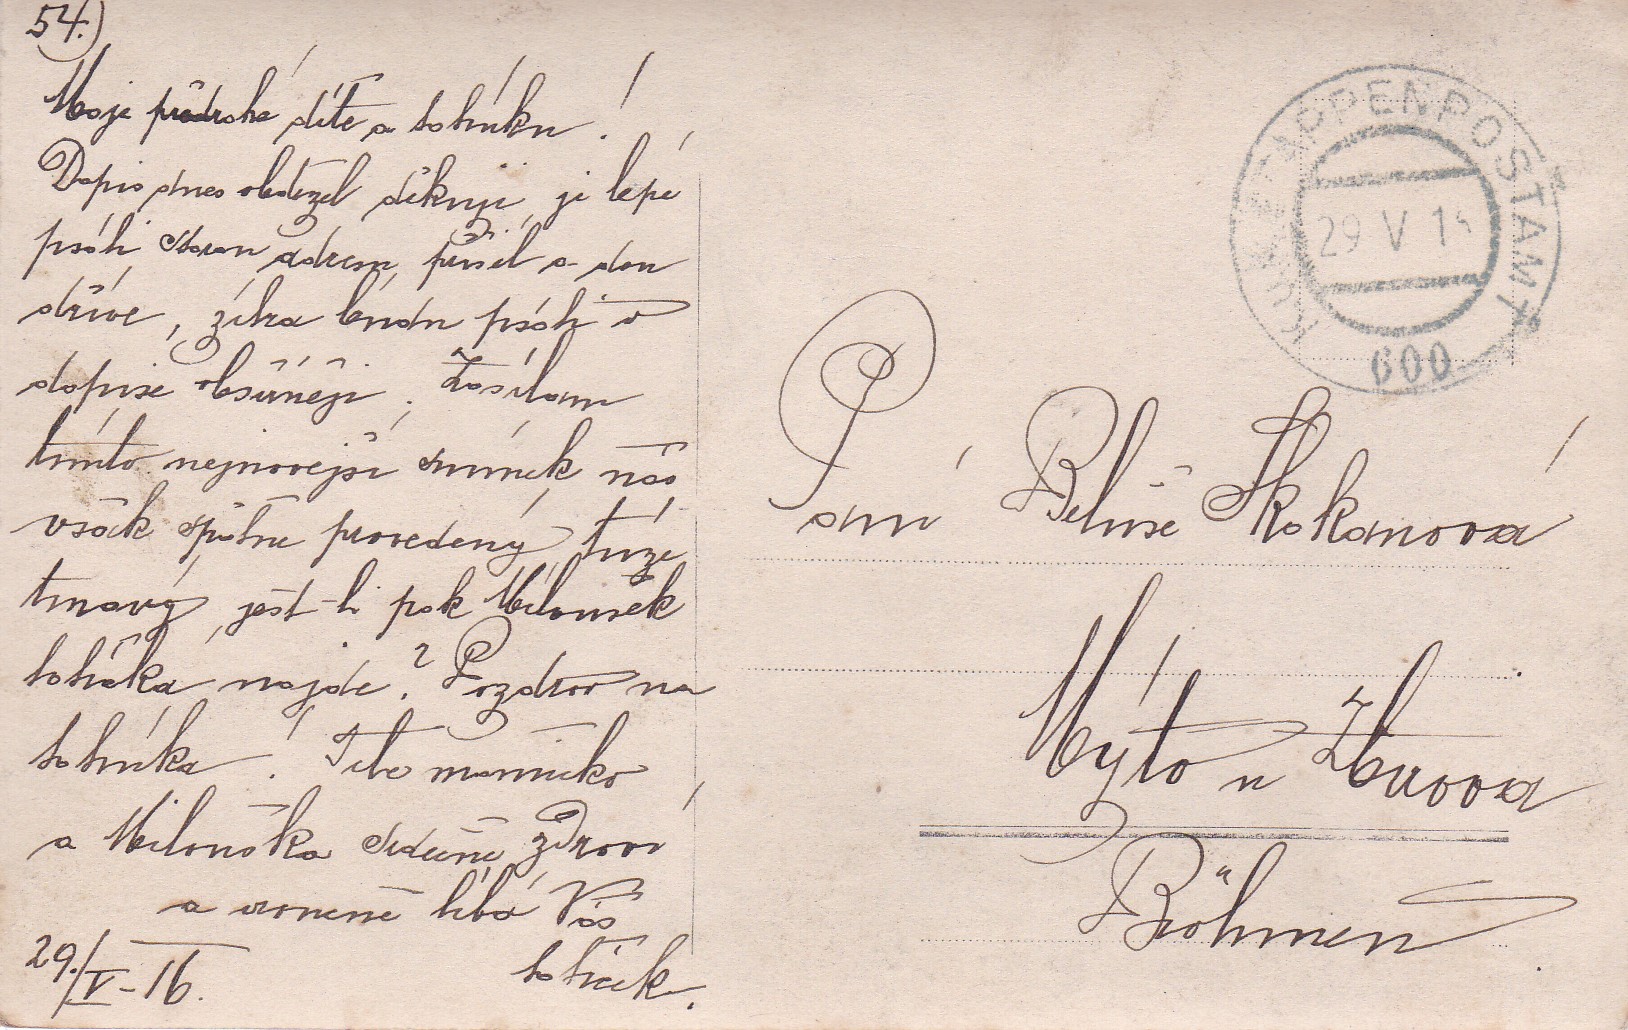 54.)
Moje předrahé dítě a tohúku!
Dopis dnes obdržel děkuji, je lépe
psáti starou adresu, přišel o den
dříve, zítra budu psáti v
dopise obšírněji. Zasílám
tímto nejnovější snímek nás
však špatně provedený, tuze
tmavý, jest-li pak Miloušek
tatíčka najde? Pozdrav na
Tebe maminko
a Milouška srdečně zdraví
a vroucně líbá Vás
29./V-16. tatíček.
K.u.K. ETAPPENPOSTAMT
29 V 1
600
Paní Beluše Skokanová
Mýto u Zbirova
Böhmen